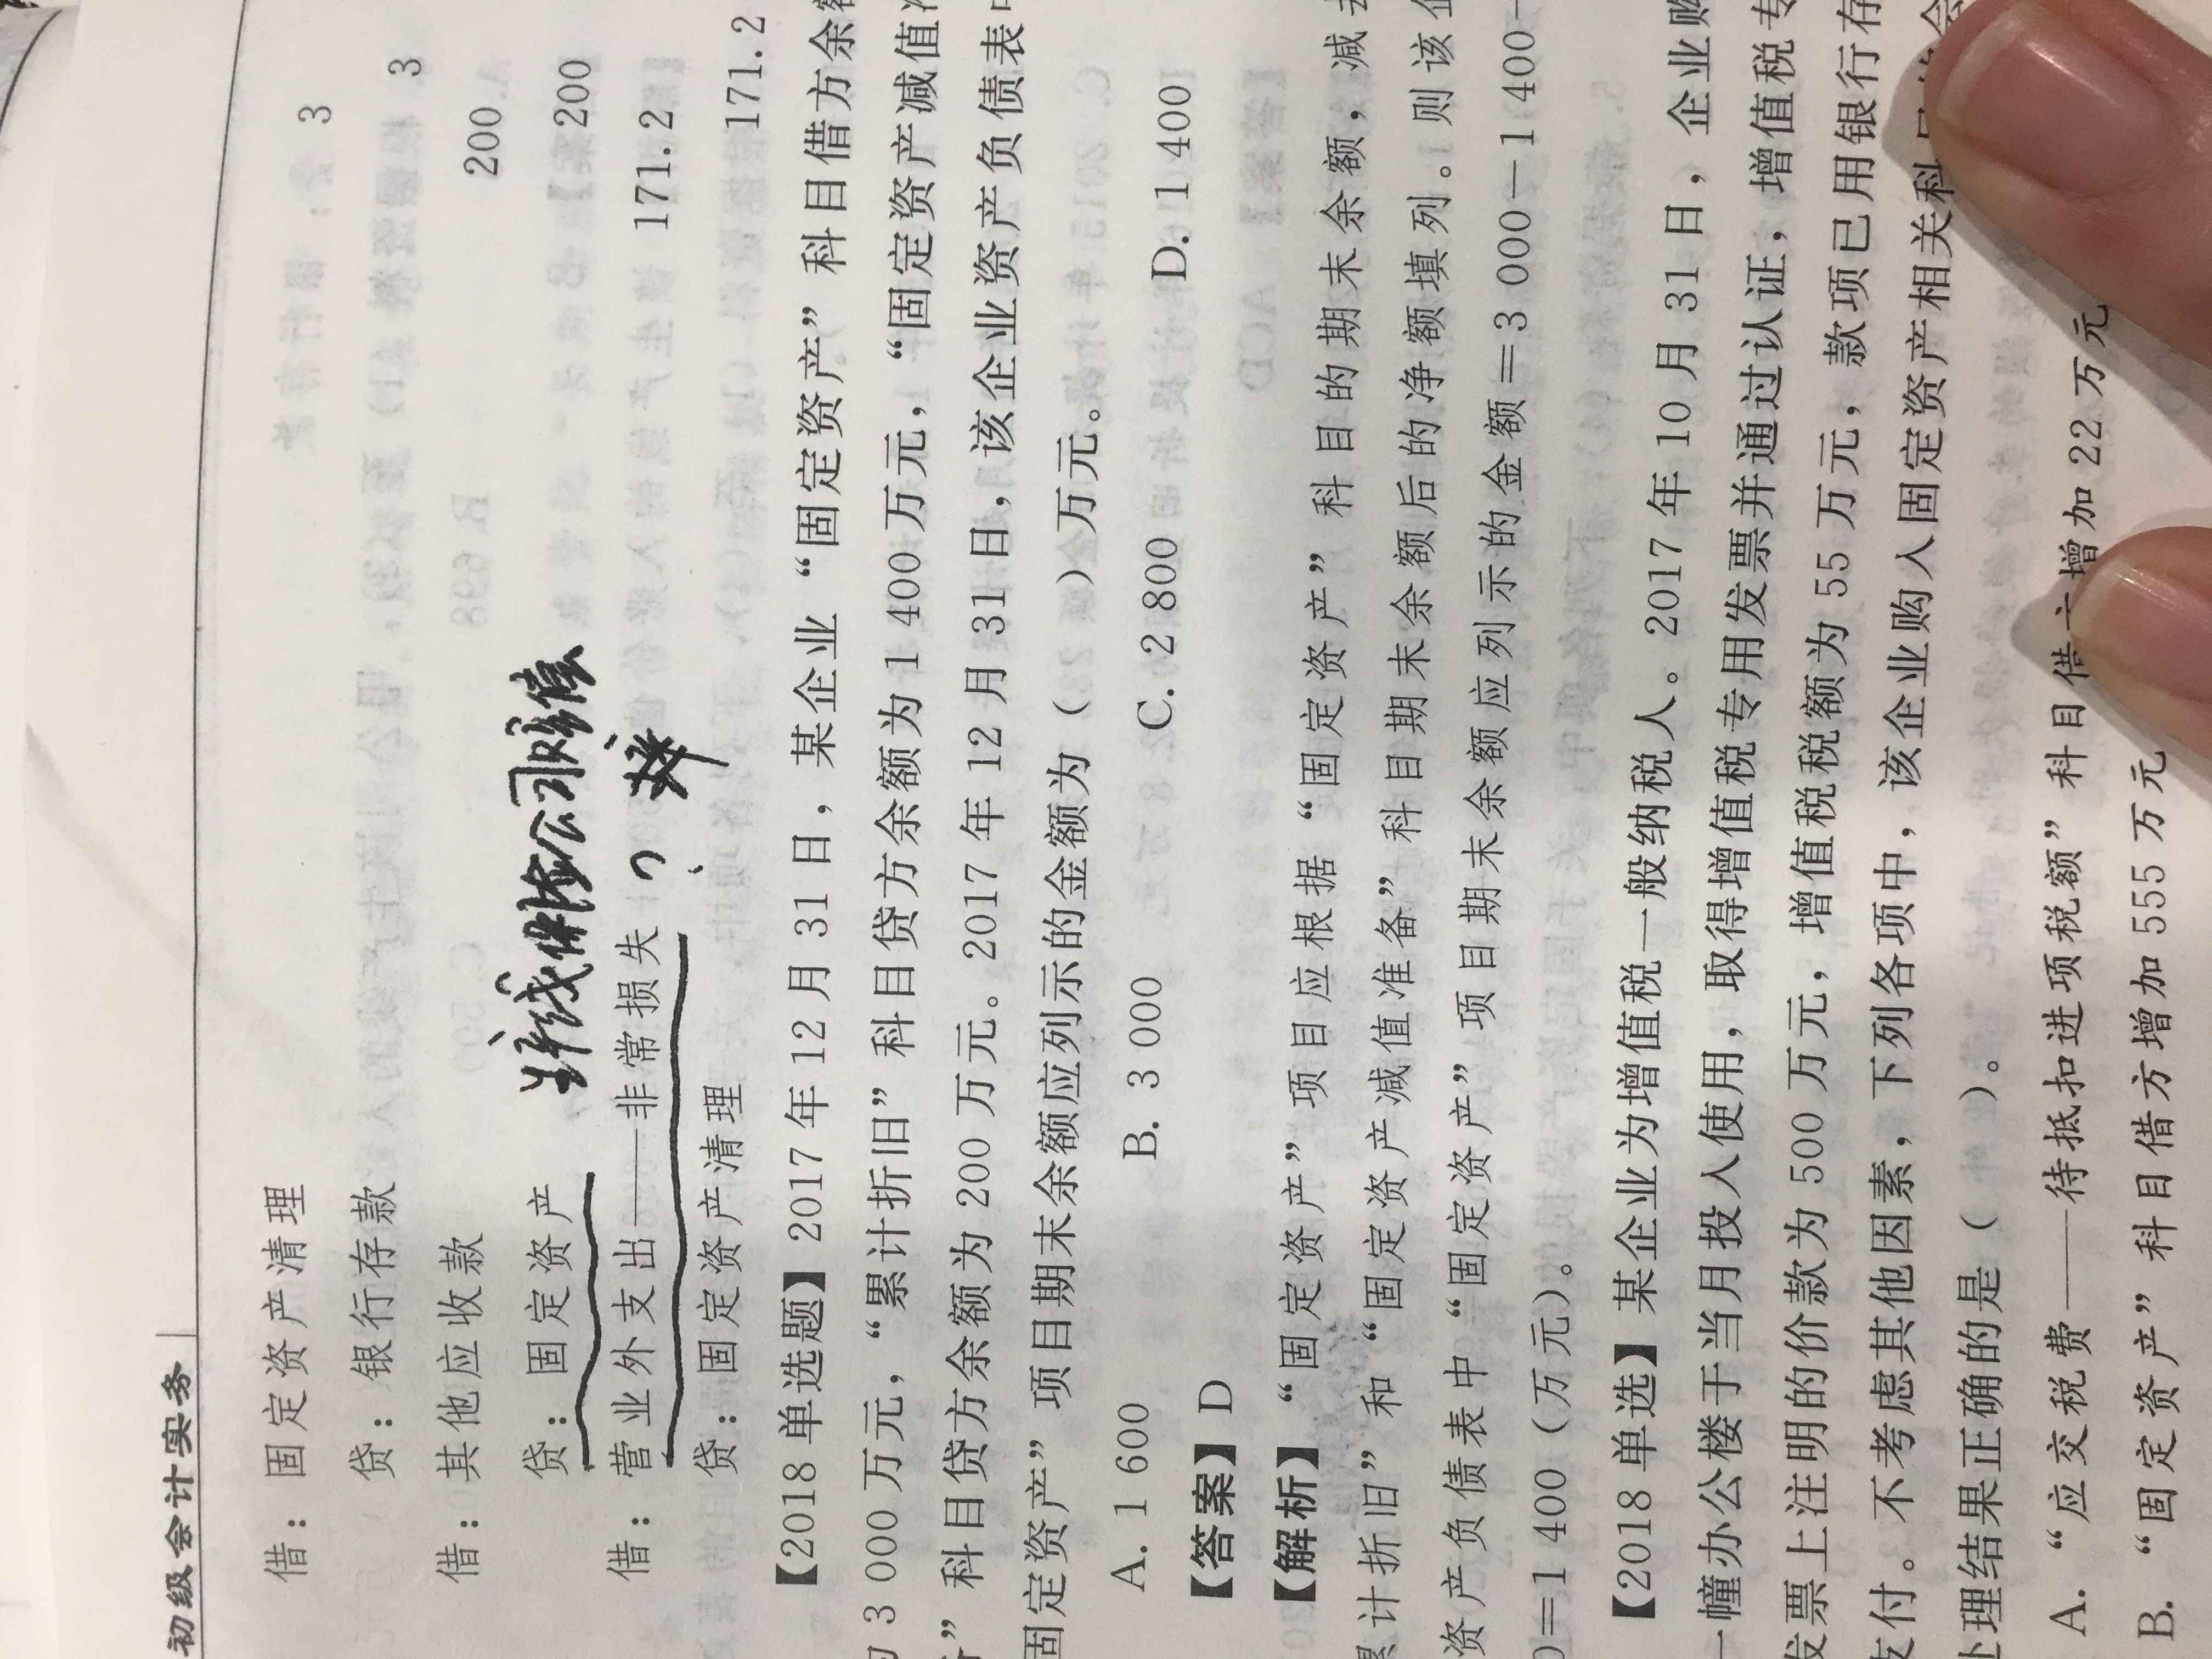 初级会计实务
借：固定资产清理 3
贷：银行存款 3
借：其他应收款 200
贷：固定资产 200
保险公司赔偿
借：营业外支出——非常损失 171.2
贷：固定资产清理 171.2
【2018 单选题】2017 年 12 月 31 日，某企业“固定资产”科目借方余
3 000 万元，“累计折旧”科目贷方余额为 1 400 万元，“固定资产减值
”科目贷方余额为 200 万元。2017 年 12 月 31 日，该企业资产负债表
固定资产”项目期末余额应列示的金额为（ ）万元。
A. 1 600 B. 3 000 C. 2 800 D. 1 400
【答案】D
【解析】“固定资产”项目应根据“固定资产”科目的期末余额，减
累计折旧”和“固定资产减值准备”科目期末余额后的净额填列。则该
资产负债表中“固定资产”项目期末余额应列示的金额＝3 000－1 400－
)＝1 400（万元）。
【2018 单选】某企业为增值税一般纳税人。2017 年 10 月 31 日，企业购
一幢办公楼于当月投入使用，取得增值税专用发票并通过认证，增值税专
发票上注明的价款为 500 万元，增值税税额为 55 万元，款项已用银行存
支付。不考虑其他因素，下列各项中，该企业购入固定资产相关科
处理结果正确的是（ ）。
A. “应交税费——待抵扣进项税额”科目借方增加 22 万元
B. “固定资产”科目借方增加 555 万元